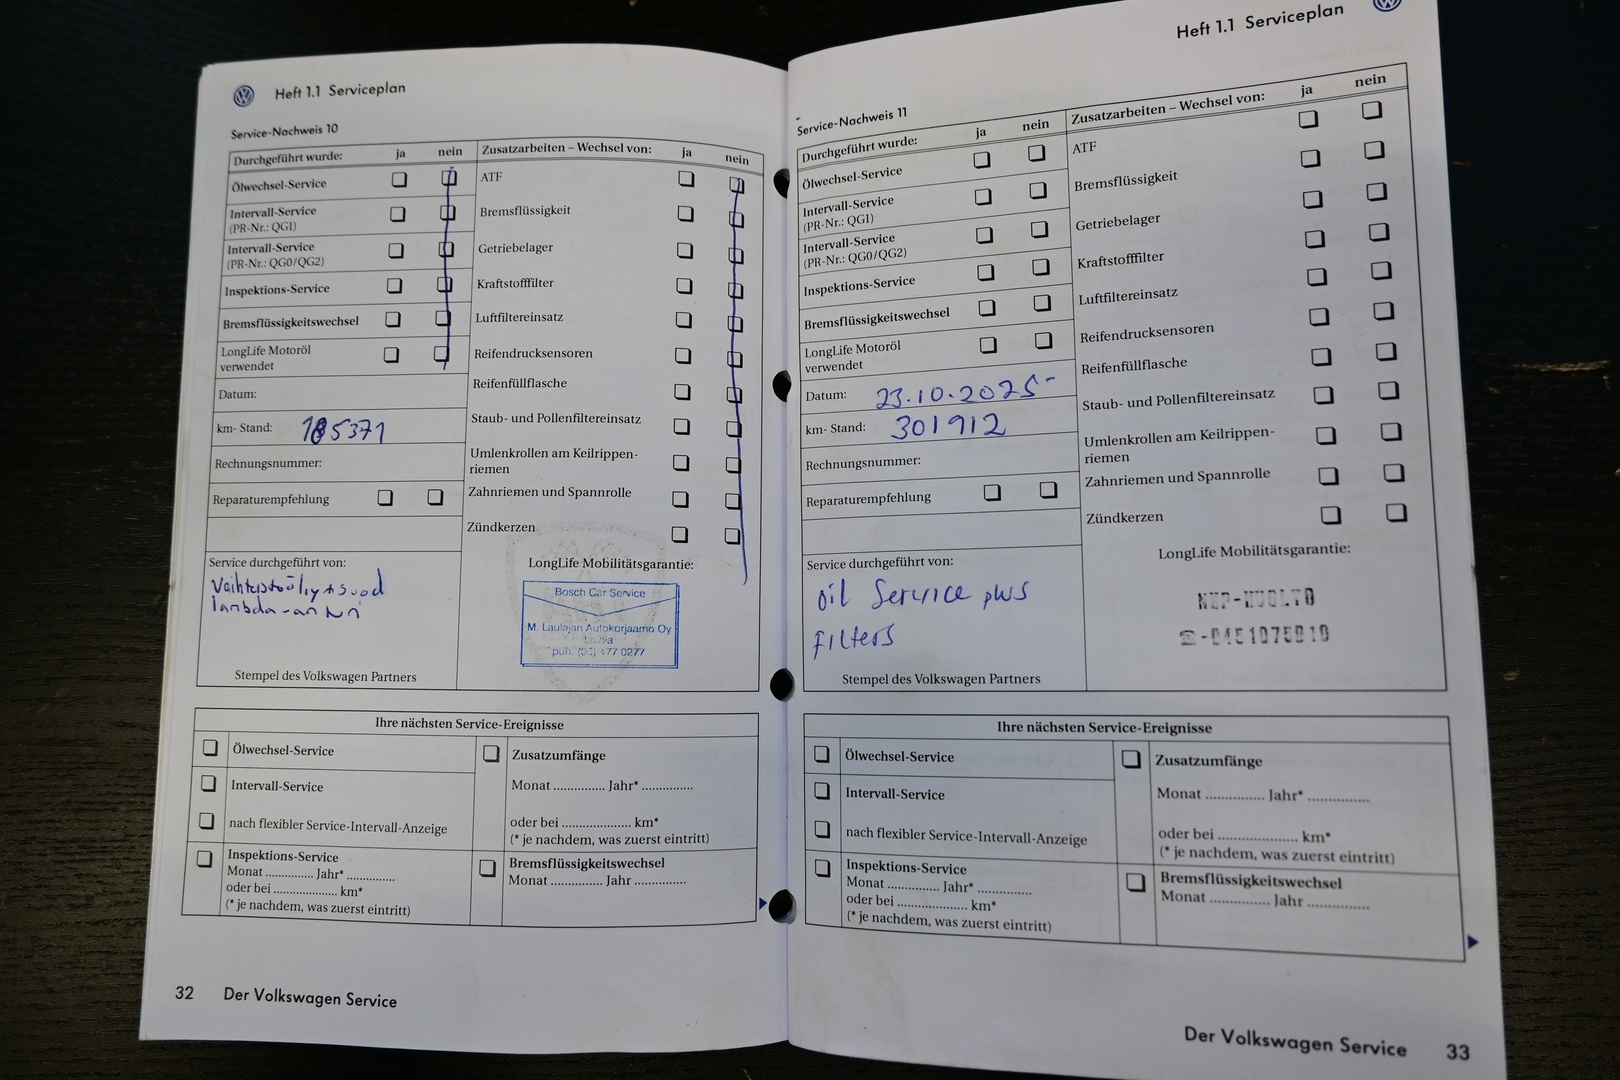 Heft 1.1 Serviceplan
Service-Nachweis 10
Durchgeführt wurde: ja nein
Ölwechsel-Service
Intervall-Service
(PR-Nr.: QG1)
Intervall-Service
(PR-Nr.: QG0/QG2)
Inspektions-Service
Bremsflüssigkeitswechsel
LongLife Motoröl
verwendet
Datum:
km- Stand: 185371
Rechnungsnummer:
Reparaturempfehlung
Service durchgeführt von:
lambda-anturi
Stempel des Volkswagen Partners
Zusatzarbeiten – Wechsel von: ja nein
ATF
Bremsflüssigkeit
Getriebelager
Kraftstofffilter
Luftfiltereinsatz
Reifendrucksensoren
Reifenfüllflasche
Staub- und Pollenfiltereinsatz
Umlenkrollen am Keilrippen-
riemen
Zahnriemen und Spannrolle
Zündkerzen
LongLife Mobilitätsgarantie:
Bosch Car Service
M. Laulajan Autokorjaamo Oy
Laihia
puh. (06) 477 0277
Ihre nächsten Service-Ereignisse
Ölwechsel-Service
Intervall-Service
nach flexibler Service-Intervall-Anzeige
Inspektions-Service
Monat .............. Jahr* ..............
oder bei .................... km*
(* je nachdem, was zuerst eintritt)
Zusatzumfänge
Monat .............. Jahr* ..............
oder bei .................... km*
(* je nachdem, was zuerst eintritt)
Bremsflüssigkeitswechsel
Monat .............. Jahr ..............
32 Der Volkswagen Service
Heft 1.1 Serviceplan
Service-Nachweis 11
Durchgeführt wurde: ja nein
Ölwechsel-Service
Intervall-Service
(PR-Nr.: QG1)
Intervall-Service
(PR-Nr.: QG0/QG2)
Inspektions-Service
Bremsflüssigkeitswechsel
LongLife Motoröl
verwendet
Datum: 23.10.2025-
km- Stand: 301912
Rechnungsnummer:
Reparaturempfehlung
Service durchgeführt von:
oil Service plus
Filters
Stempel des Volkswagen Partners
Zusatzarbeiten – Wechsel von: ja nein
ATF
Bremsflüssigkeit
Getriebelager
Kraftstofffilter
Luftfiltereinsatz
Reifendrucksensoren
Reifenfüllflasche
Staub- und Pollenfiltereinsatz
Umlenkrollen am Keilrippen-
riemen
Zahnriemen und Spannrolle
Zündkerzen
LongLife Mobilitätsgarantie:
Ihre nächsten Service-Ereignisse
Ölwechsel-Service
Intervall-Service
nach flexibler Service-Intervall-Anzeige
Inspektions-Service
Monat .............. Jahr* ..............
oder bei .................... km*
(* je nachdem, was zuerst eintritt)
Zusatzumfänge
Monat .............. Jahr* ..............
oder bei .................... km*
(* je nachdem, was zuerst eintritt)
Bremsflüssigkeitswechsel
Monat .............. Jahr ..............
Der Volkswagen Service 33